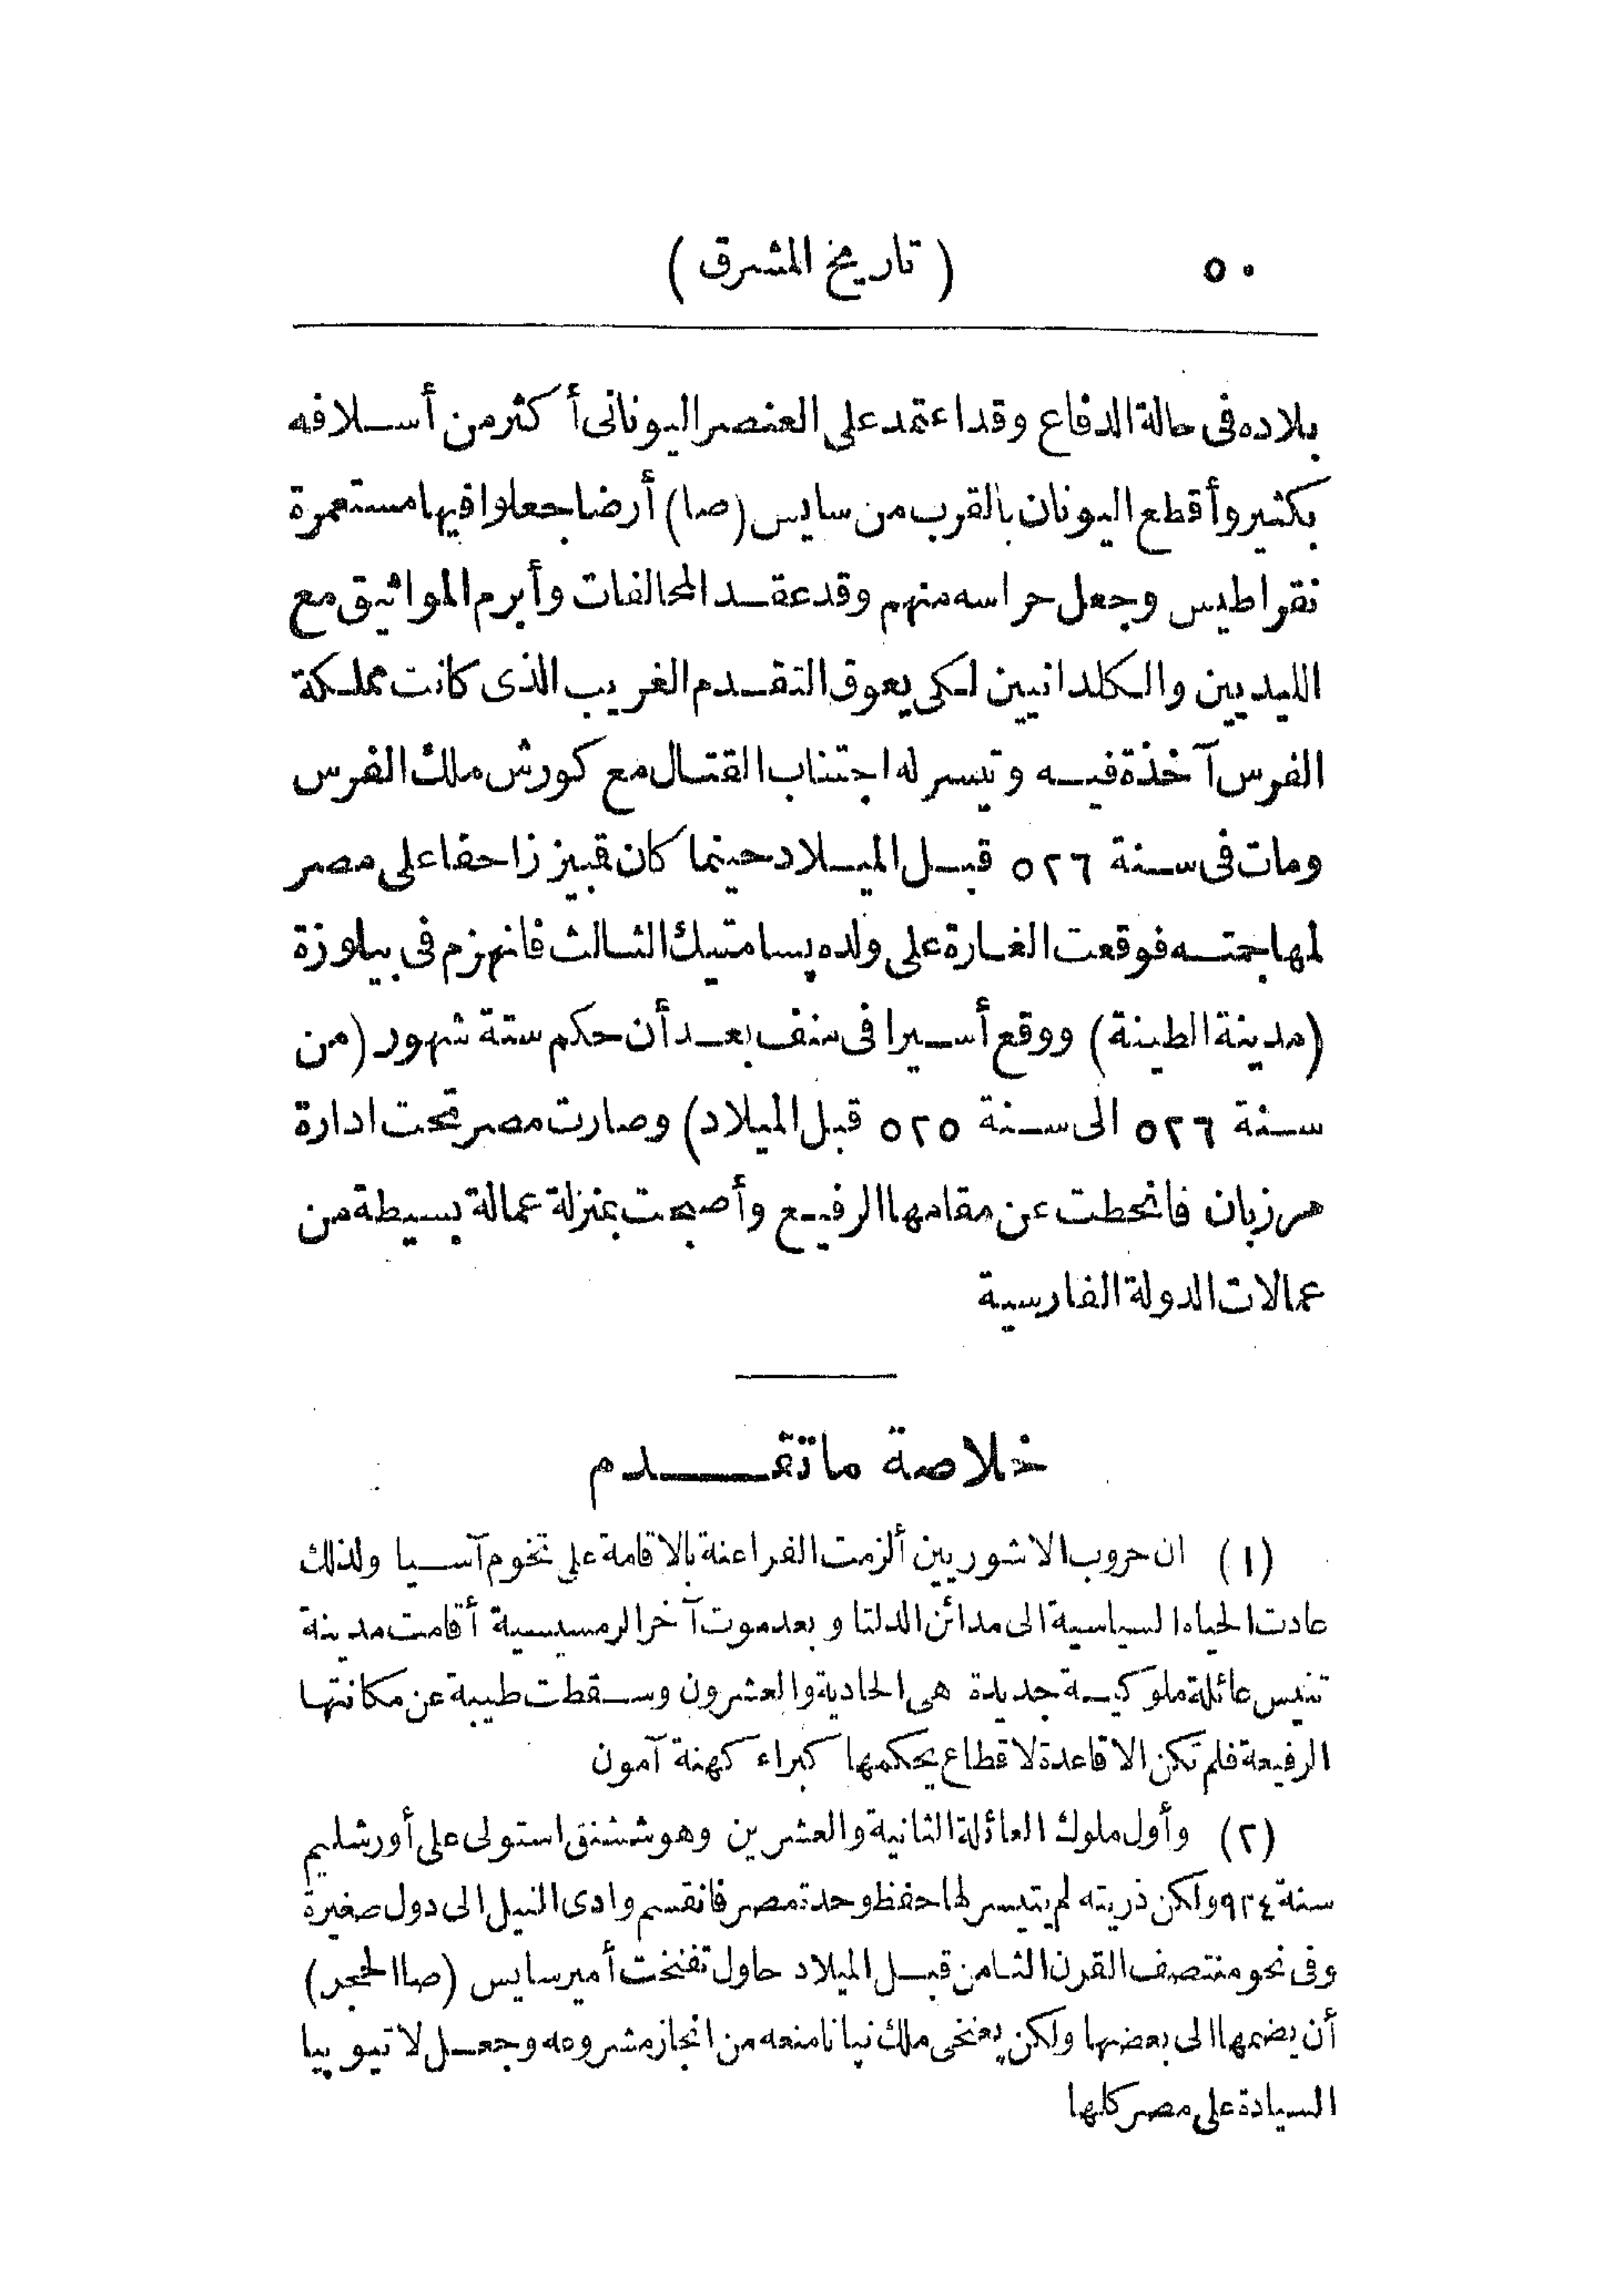 ٥٠ ( تاريخ المشرق )
بلاده فى حالة الدفاع وقد اعتمد على العنصر اليونانى أكثر من أسلافه
بكثير وأقطع اليونان بالقرب من سايس (صا) أرضا جعلوا فيها مستعمرة
نقراطيس وجعل حراسه منهم وقد عقد المحالفات وأبرم المواثيق مع
الليديين والكلدانيين لكى يعوق التقدم الغريب الذى كانت مملكة
الفرس آخذة فيه وتيسر له اجتناب القتال مع كورش ملك الفرس
ومات فى سنة ٥٢٦ قبل الميلاد حينما كان قمبيز زاحفا على مصر
لمهاجمته فوقعت الغارة على ولده پسامتيك الثالث فانهزم فى پيلوزة
(مدينة الطينة) ووقع أسيرا فى منف بعد أن حكم ستة شهور (من
سنة ٥٢٦ الى سنة ٥٢٥ قبل الميلاد) وصارت مصر تحت ادارة
مرزبان فانحطت عن مقامها الرفيع وأصبحت بمنزلة عمالة بسيطة من
عمالات الدولة الفارسية
خلاصة ما تقدم
(١) ان حروب الاشوريين ألزمت الفراعنة بالاقامة على تخوم آسيا ولذلك
عادت الحياه السياسية الى مدائن الدلتا وبعد موت آخر الرمسيسية أقامت مدينة
تنيس عائلة ملوكية جديدة هى الحادية والعشرون وسقطت طيبة عن مكانتها
الرفيعة فلم تكن الا قاعدة لاقطاع يحكمها كبراء كهنة آمون
(٢) وأول ملوك العائلة الثانية والعشرين وهو ششنق استولى على أورشليم
سنة ٩٢٤ ولكن ذريته لم يتيسر لها حفظ وحدة مصر فانقسم وادى النيل الى دول صغيرة
وفى نحو منتصف القرن الثامن قبل الميلاد حاول تفنخت أمير سايس (صا الحجر)
أن يضمها الى بعضها ولكن پعنخى ملك نپاتا منعه من انجاز مشروعه وجعل لاتيوپيا
السيادة على مصر كلها